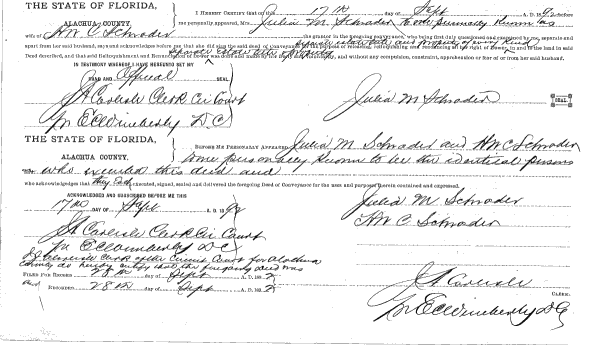 THE STATE OF FLORIDA,
ALACHUA COUNTY.
I HEREBY CERTIFY that on this 17th day of Sept A. D. 189 before
me personally appeared, Julia M. Schrader to me personally known as
wife of H W C Schrader the grantor in the foregoing conveyance, who being first duly questioned and examined by me, separate and
apart from her said husband, says and acknowledges before me that she did sign the said deed of Conveyance for the purpose of releasing, relinquishing and renouncing all her right of Dower, in and to the land in said
Deed described, and that said Relinquishment and Renunciation of Dower was done and made by her freely and voluntarily, and without any compulsion, constraint, apprehension or fear of or from her said husband.
IN TESTIMONY WHEREOF I HAVE HEREUNTO SET MY
HAND AND Official SEAL
J A Carlisle Clerk Cir Court
Julia M Schrader SEAL.
Pr E C Wimberly D C
THE STATE OF FLORIDA,
ALACHUA COUNTY.
BEFORE ME PERSONALLY APPEARED Julia M Schrader and H W C Schrader
to me personally known to be the identical persons
who executed this deed and
who acknowledges that they did executed, signed, sealed and delivered the foregoing Deed of Conveyance for the uses and purposes therein contained and expressed.
ACKNOWLEDGED AND SUBSCRIBED BEFORE ME THIS
17th DAY OF Sept A. D. 1892
Julia M Schrader
H W C Schrader
J A Carlisle Clerk Cir Court
Pr E C Wimberly D C
Clerk of the Circuit Court for Alachua
County do hereby certify that the foregoing deed was
FILED FOR RECORD 28th day of Sept A.D. 1892
and RECORDED 28th day of Sept A.D. 1892
J A Carlisle CLERK.
Pr E C Wimberly D C